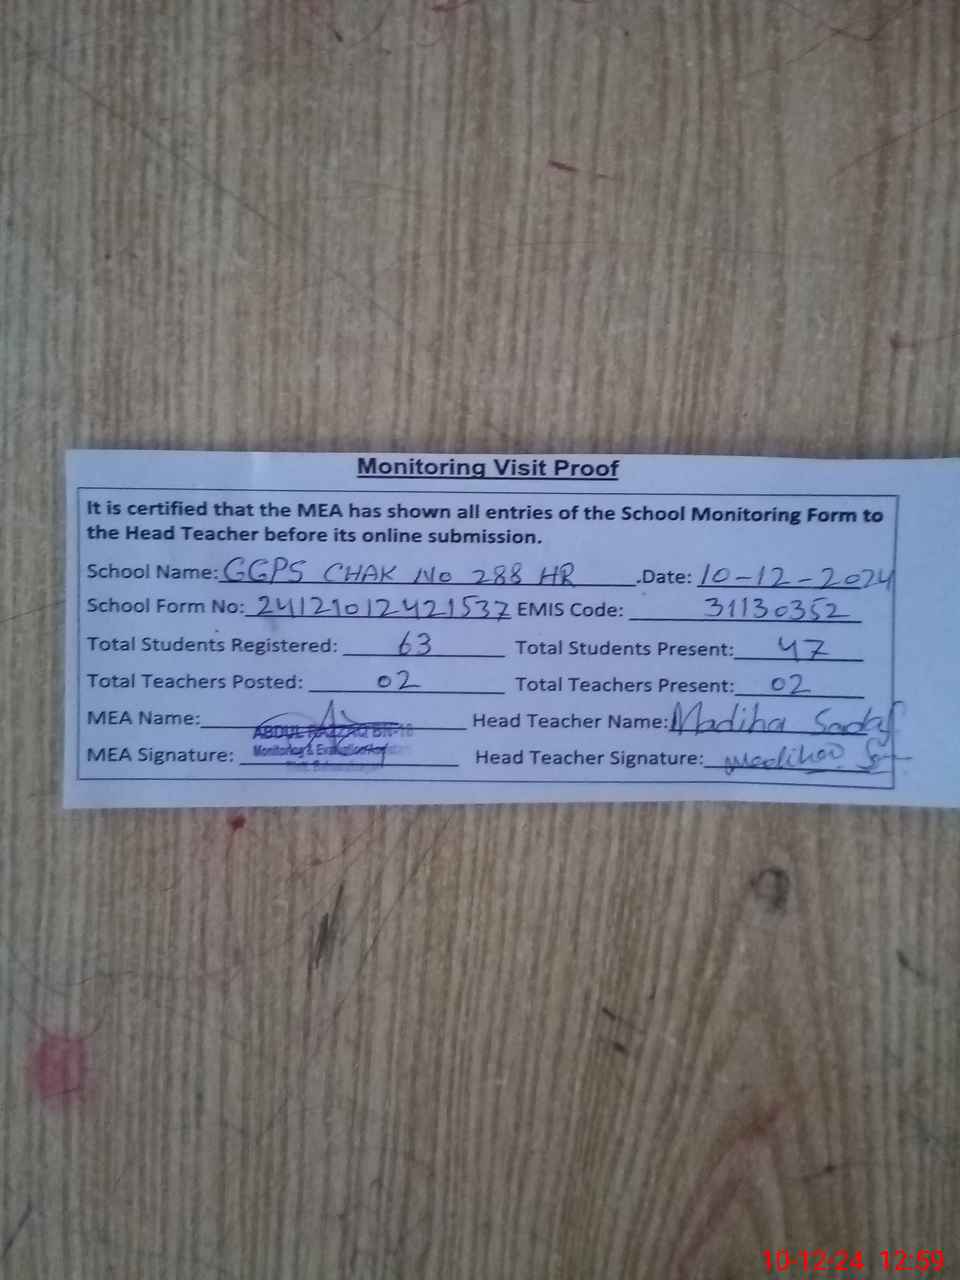 Monitoring Visit Proof
It is certified that the MEA has shown all entries of the School Monitoring Form to
the Head Teacher before its online submission.
School Name: GGPS CHAK No 288 HR .Date: 10-12-2024
School Form No: 24121012421537 EMIS Code: 31130352
Total Students Registered: 63 Total Students Present: 47
Total Teachers Posted: 02 Total Teachers Present: 02
MEA Name: ABDUL RAZZAQ Head Teacher Name: Madiha Sadaf
Monitoring & Evaluation
MEA Signature: Head Teacher Signature: Madiha
10-12-24 12:59